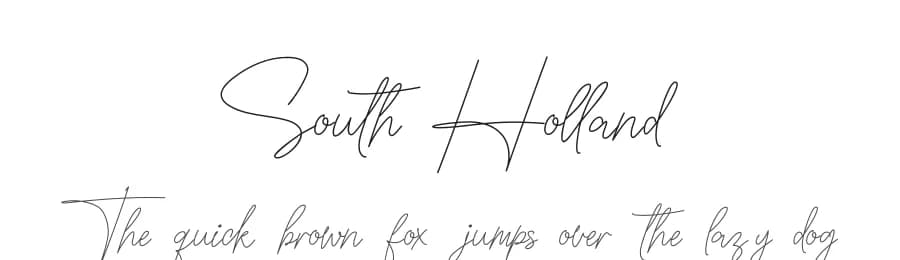 South Holland
The quick brown fox jumps over the lazy dog